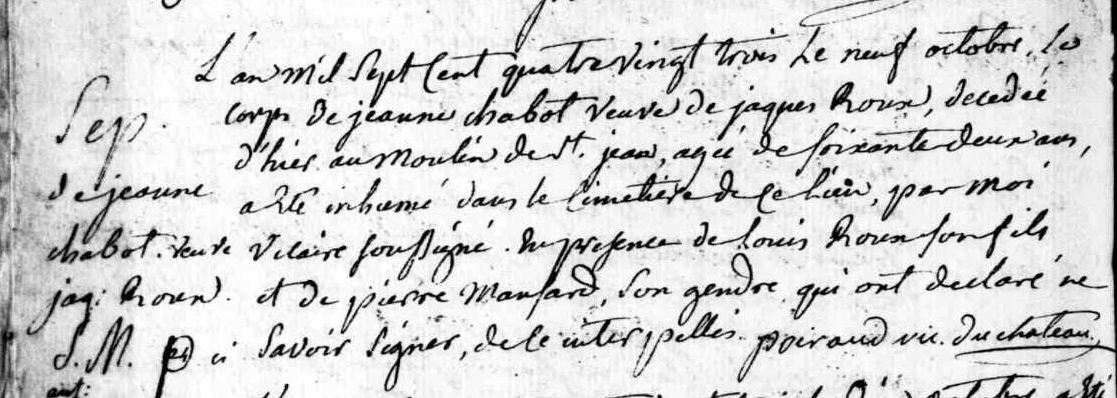 L'an mil Sept Cent quatre vingt trois Le neuf octobre, Le
corps de jeanne chabot veuve de jaques Roux, decedée
d'hier au Moulin de St. jean, agée de soixante deux ans,
a Eté inhumé dans le Cimetière de Ce lieu, par moi
vicaire soussigné. En presence de Louis Roux son fils
et de pierre Mansard, son gendre qui ont declaré ne
savoir signer, de ce interpellés. poiraud vic. du chateau,
Sep.
de jeanne
chabot. veuve
jaq: Roux.
S. M.